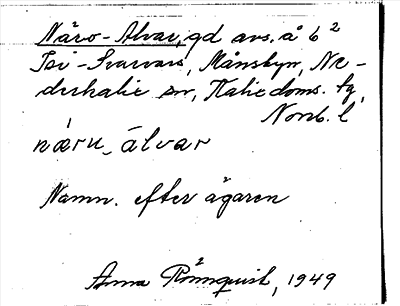 Näro-Alvar, gd avs. å 6²
Isi-Svarvars, Månsbyn, Ne-
derkalix sn, Kalix doms. tg,
Norrb. l
næru-álvar
Namn. efter ägaren
Anna Rönnquist, 1949